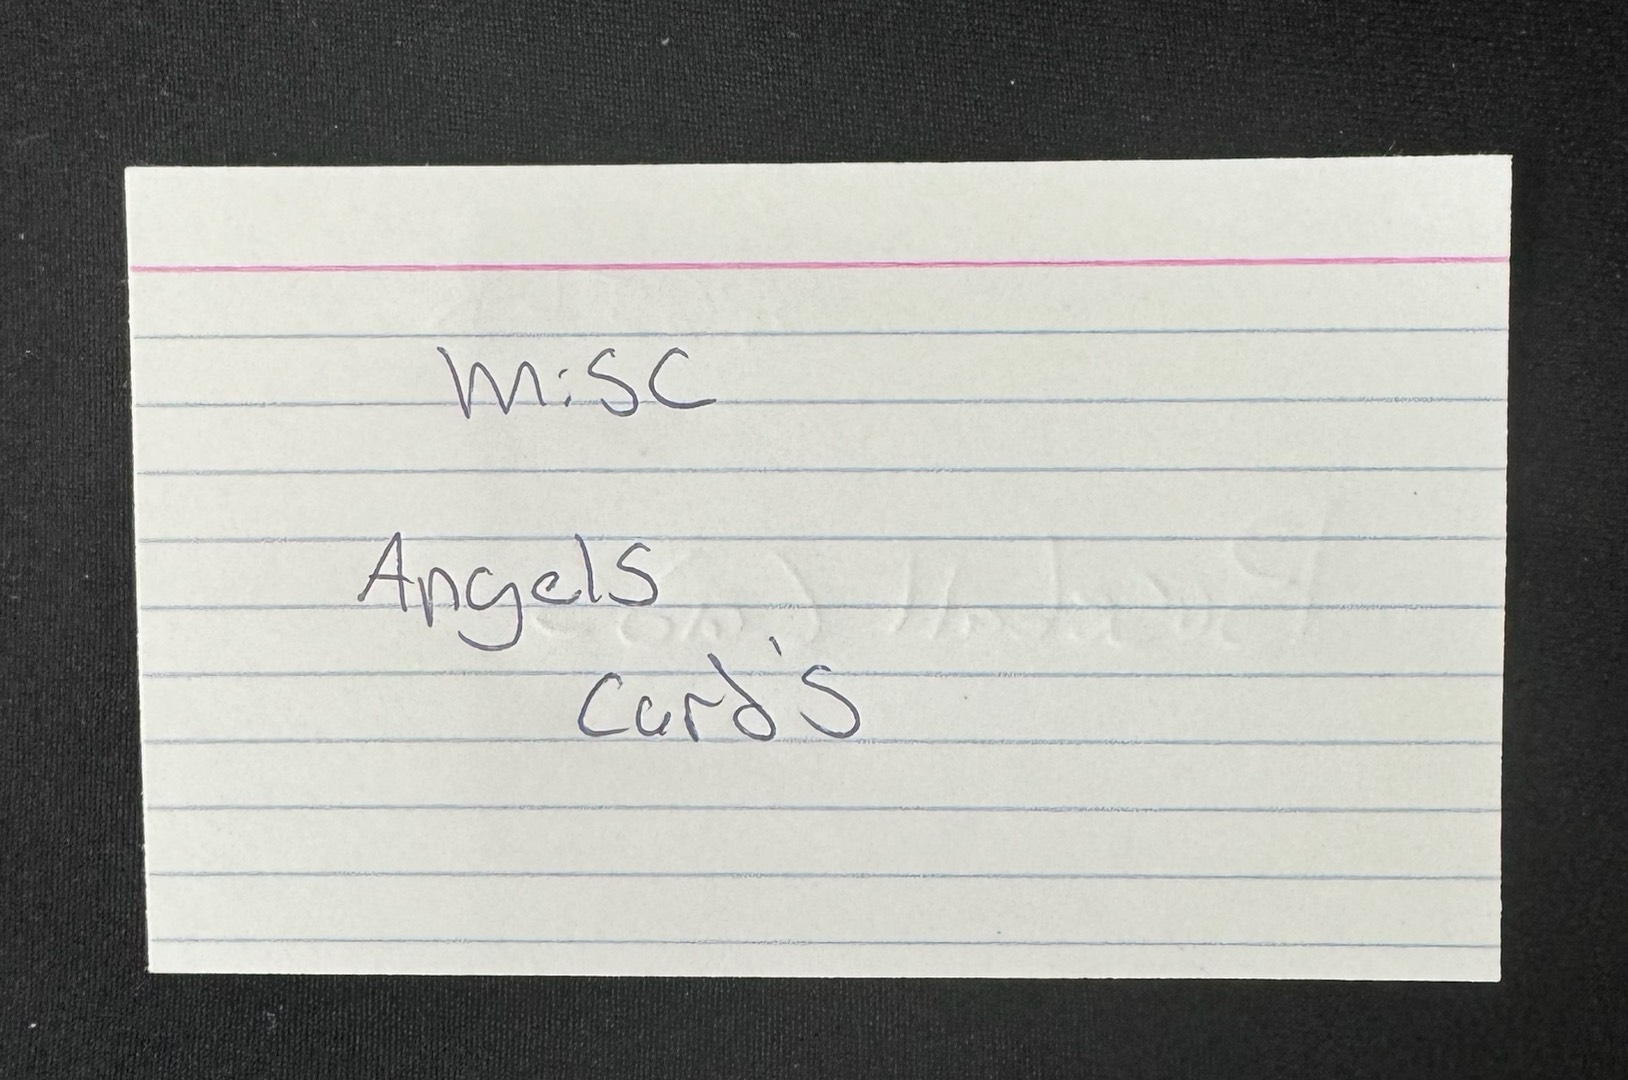 Misc
Angels
Card's